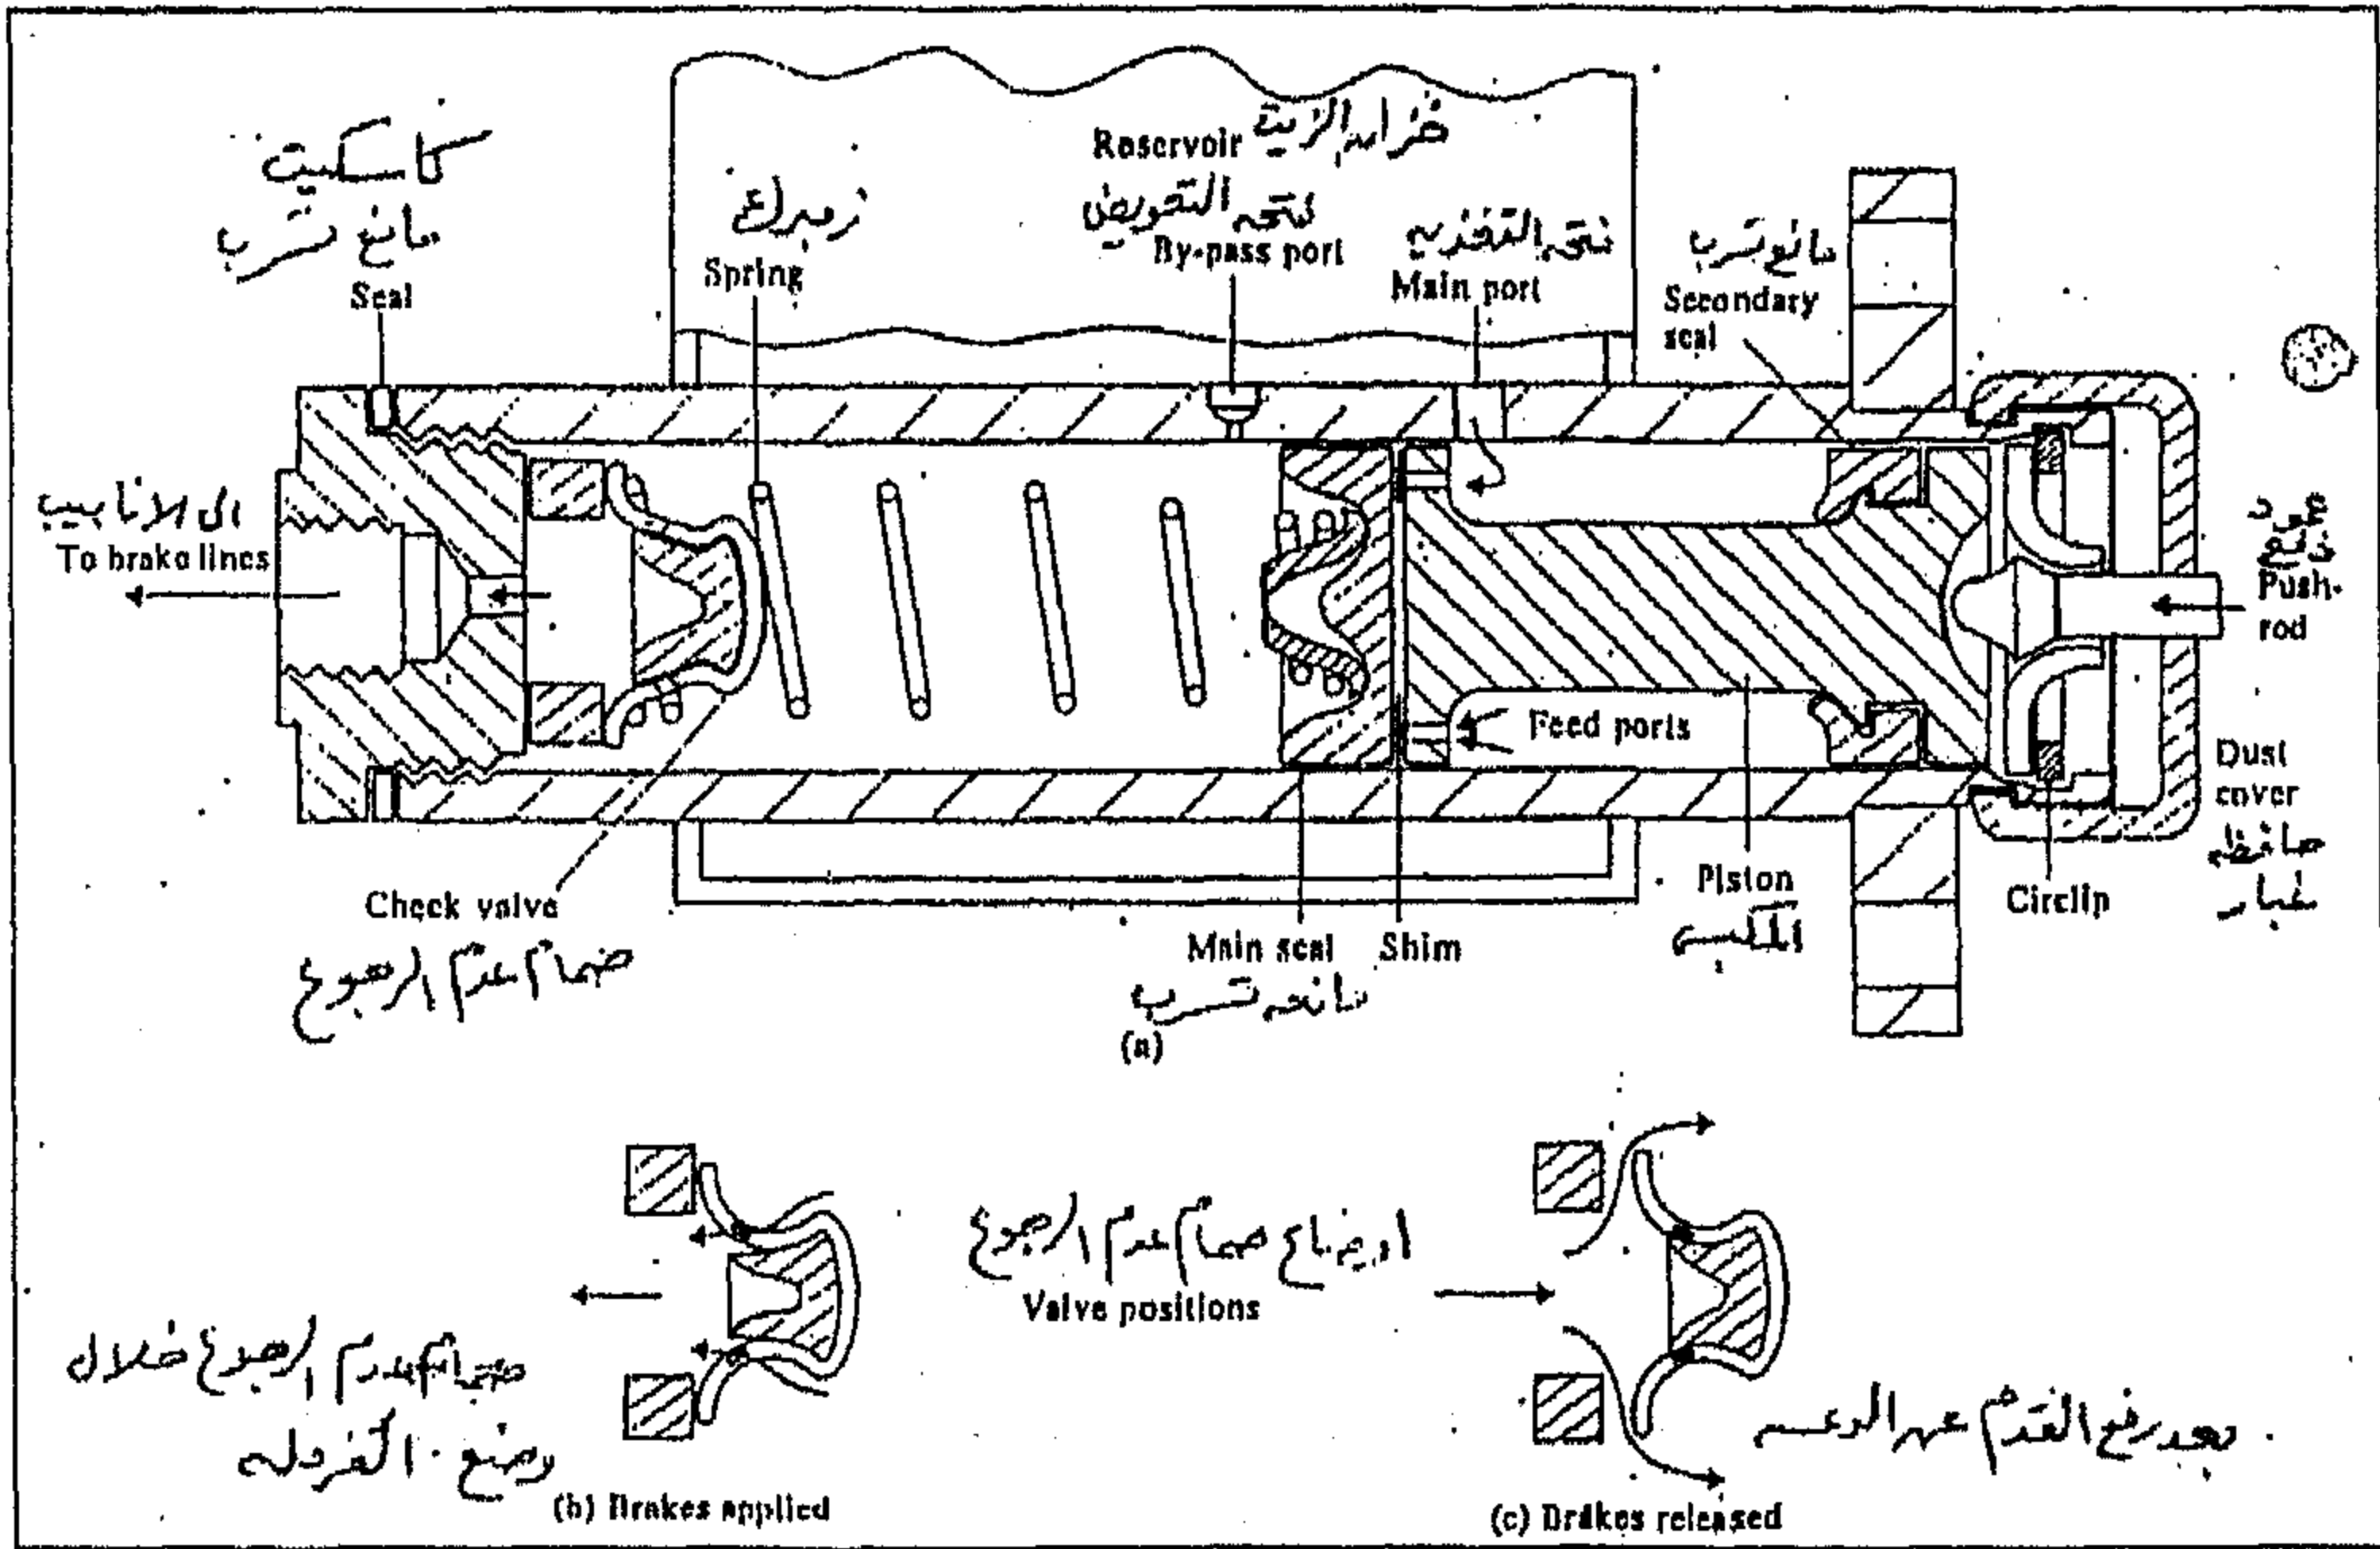 كاسكيت
مانع تسرب
Seal
زمبراع
Spring
Reservoir خزان الزيت
فتحه التعويض
By-pass port
فتحه التغذيه
Main port
مانع تسرب
Secondary
seal
الى الانابيب
To brake lines
عمود
دفع
Push-
rod
Feed ports
Dust
cover
حافظه
غبار
Check valve
ضمام عدم الرجوع
Main seal
مانعه تسرب
Shim
Piston
المكبس
Circlip
(a)
اوضاع ضمام عدم الرجوع
Valve positions
ضمام عدم الرجوع خلال
وضع الفرمله
(b) Brakes applied
بعد رفع القدم عن الدعسه
(c) Brakes released